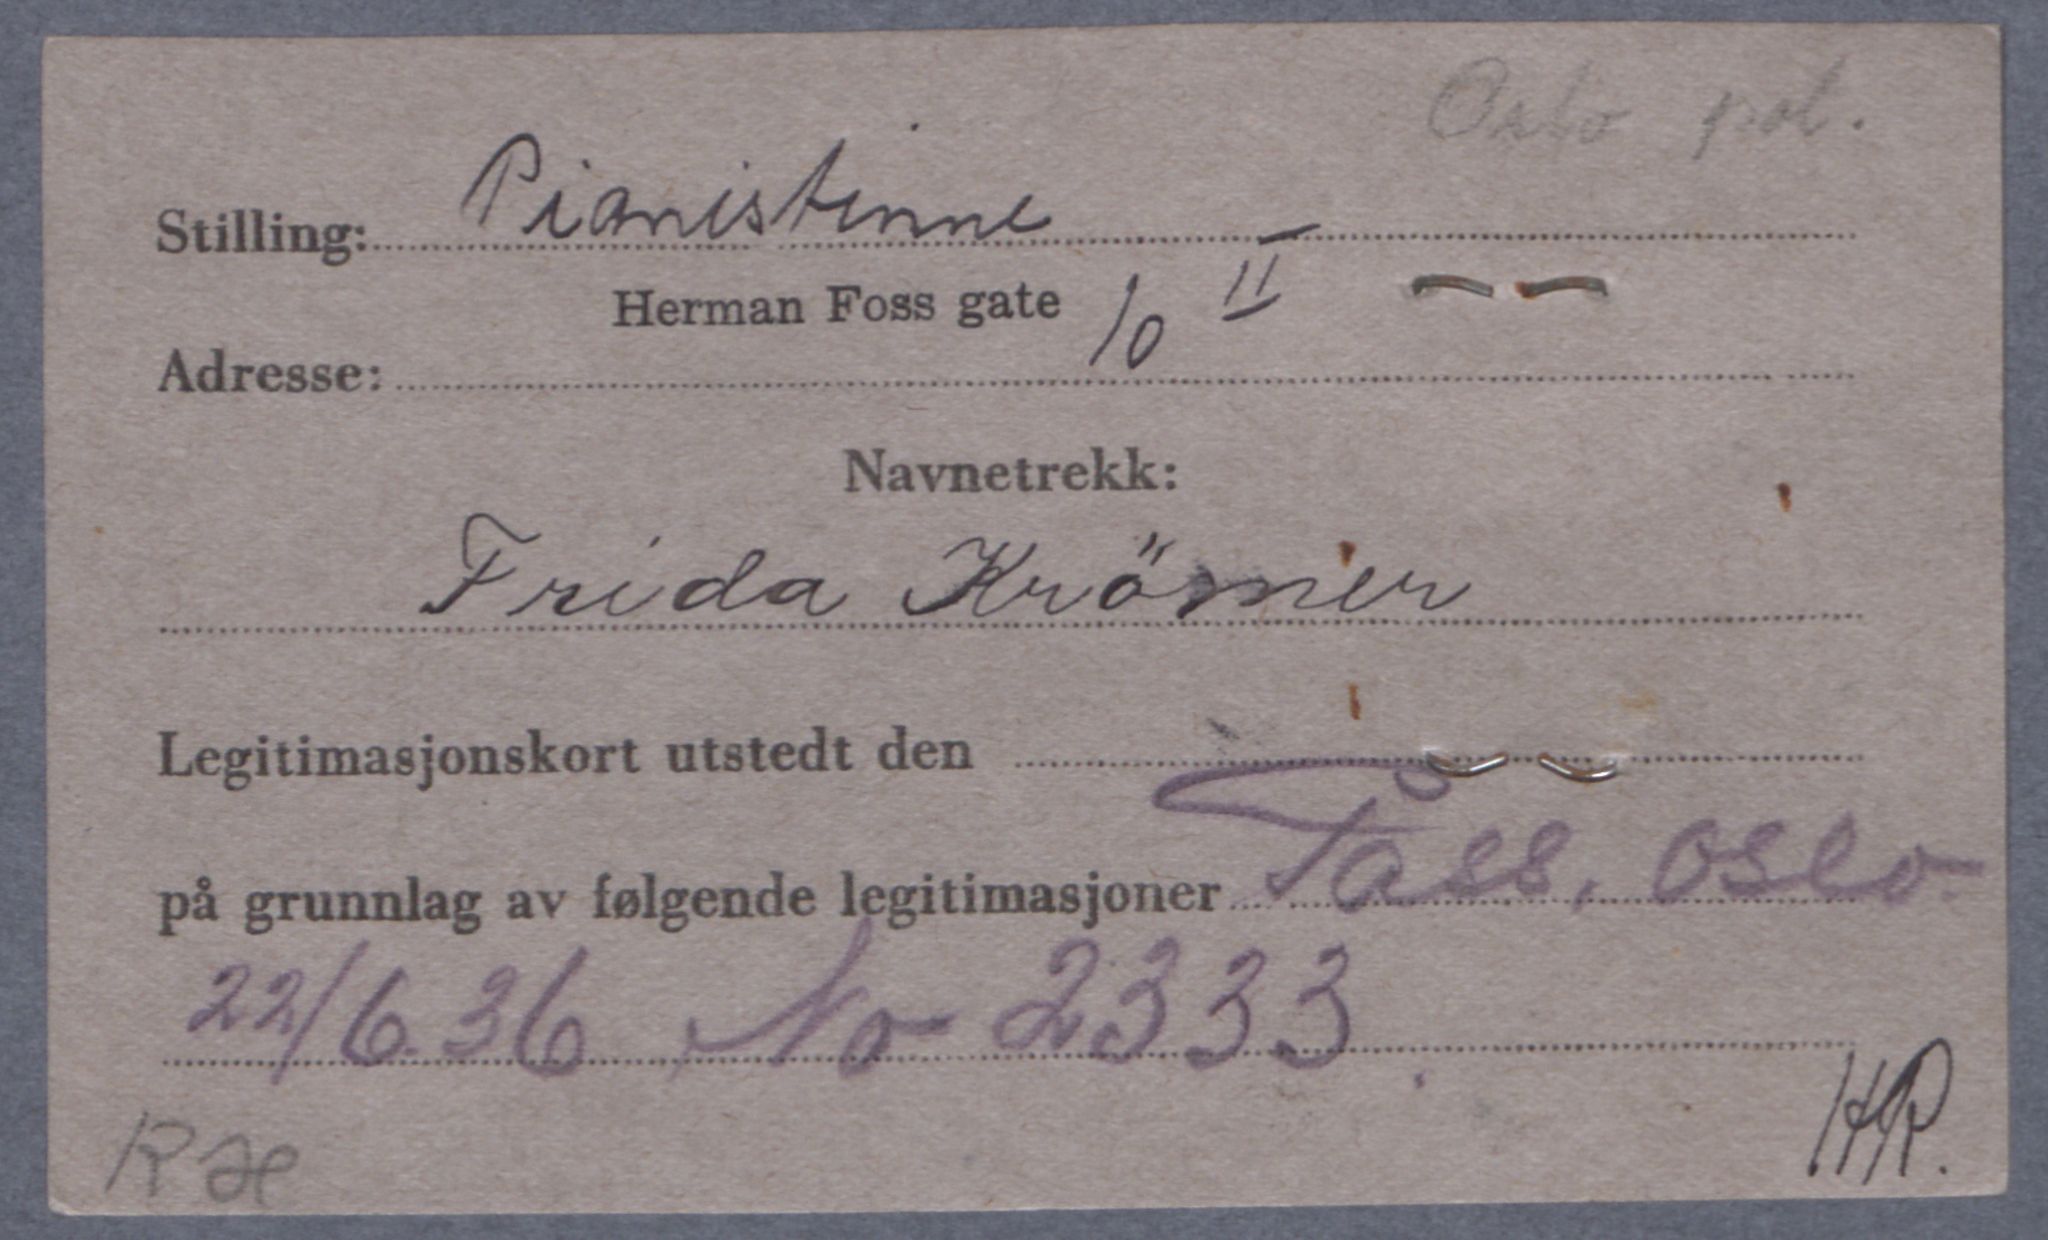 Oslo pol.
Stilling: Pianistinne
Herman Foss gate 10 II
Adresse:
Navnetrekk:
Frida Krömer
Legitimasjonskort utstedt den
på grunnlag av følgende legitimasjoner Pass, Oslo
22/6.36 No 2333.
HR.